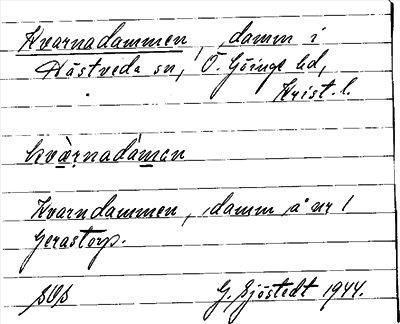 Kvarnadammen, damm i
Hästveda sn, Ö. Göinge hd,
Krist. l.
kvὰrnadáman
Kvarndammen, damm å nr 1
Gerastorp.
SOS G. Sjöstedt 1944.